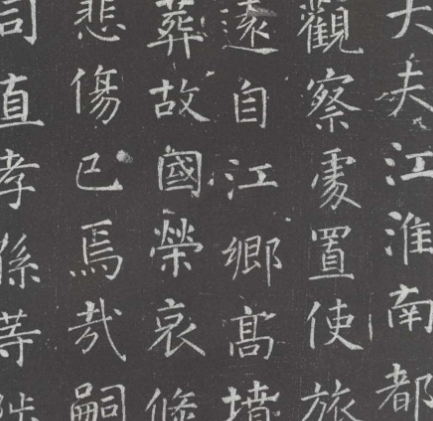 大夫江淮南都
觀察處置使旅
遠自江鄉髙墳
葬故國榮哀
悲傷已焉哉嗣
司直孝孫等